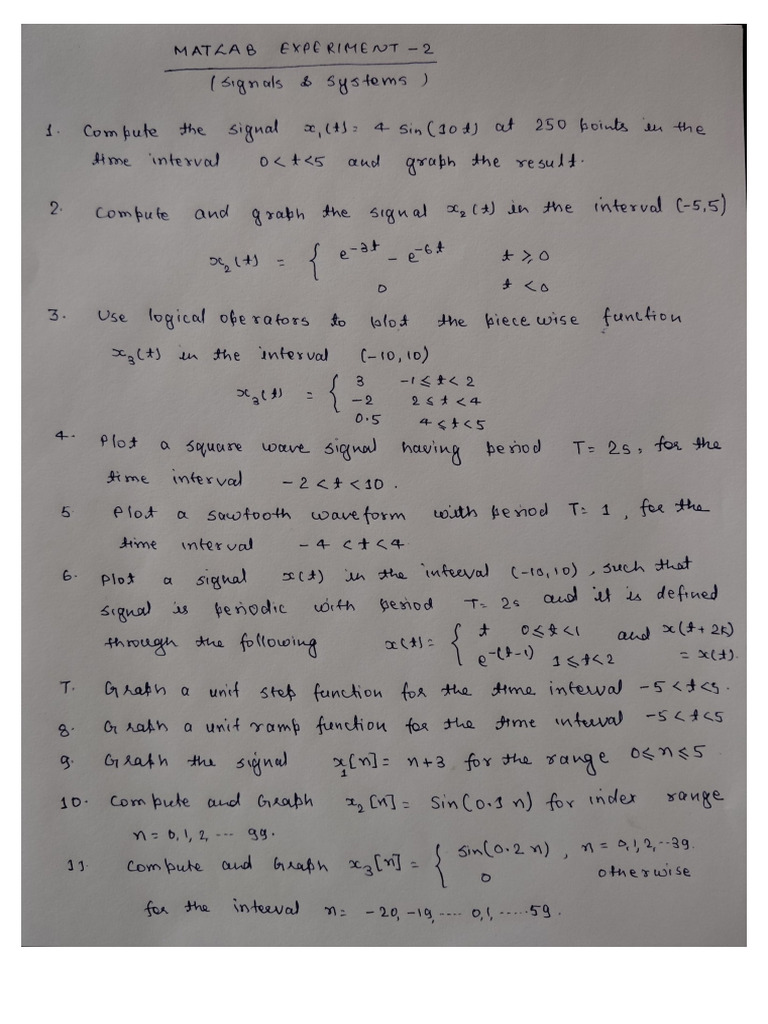 MATLAB EXPERIMENT - 2
(Signals & Systems)
1. Compute the signal x₁(t) = 4 sin(10t) at 250 points in the
time interval 0 < t < 5 and graph the result.
2. Compute and graph the signal x₂(t) in the interval (-5,5)
x₂(t) = { e^{-3t} - e^{-6t} t ⩾ 0
0 t < 0
3. Use logical operators to plot the piecewise function
x₃(t) in the interval (-10,10)
x₃(t) = { 3 -1 ≤ t < 2
-2 2 ≤ t < 4
0.5 4 ≤ t < 5
4. Plot a square wave signal having period T = 2s, for the
time interval -2 < t < 10.
5 Plot a sawtooth waveform with period T = 1, for the
time interval -4 < t < 4
6. Plot a signal x(t) in the interval (-10,10), such that
signal is periodic with period T = 2s and it is defined
through the following x(t) = { t 0 ≤ t < 1 and x(t + 2k)
e^{-(t-1)} 1 ≤ t < 2 = x(t).
7. Graph a unit step function for the time interval -5 < t < 5.
8. Graph a unit ramp function for the time interval -5 < t < 5
9. Graph the signal x₁[n] = n+3 for the range 0 ≤ n ≤ 5
10. Compute and Graph x₂[n] = Sin(0.1 n) for index range
n = 0, 1, 2, ... 99.
11. Compute and Graph x₃[n] = { sin(0.2 n), n = 0, 1, 2, ..39.
0 otherwise
for the interval n = -20, -19, .... 0, 1, ..... 59.